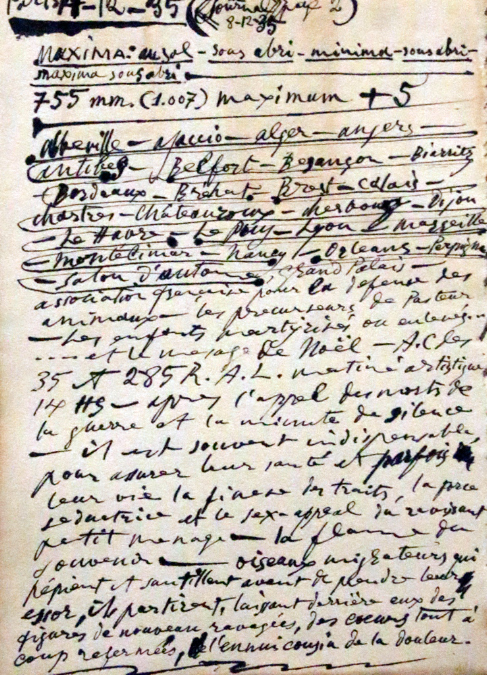 Paris 4-12-35 (Journal page 2)
8-12-35
MAXIMA: au sol - sous abri - minima - sous abri -
maxima sous abri
755 mm. (1.007) maximum + 5
abbeville - ajaccio - alger - angers -
antibes - Belfort - Besançon - Biarritz
Bordeaux - Bréhat - Brest - Calais -
chartres - Châteauroux - cherbourg - Dijon
- Le Havre - Le Puy - Lyon - Marseille
- montélimar - nancy - Orléans - Perpignan
- Salon d'automne, Grand Palais -
association française pour la défense des
animaux - les précurseurs de Pasteur
- Les enfants martyrisés ou enlevés...
.... et le message de Noël - A.C. les
35 et 285 R.A.L. matiné artistique
14 H9 - après l'appel des morts de
la guerre et la minute de silence
- il est souvent indispensable,
pour assurer leur santé et parfois
leur vie la finesse des traits, la grace
séductrice et le sex-appeal du ravissant
petit menage - la flamme du
souvenir - oiseaux migrateurs qui
pépient et sautillent avant de prendre leur
essor, ils partirent, laissant derrière eux des
figures de nouveau ravagées, des coeurs tout à
coup refermés, l'ennui cousin de la douleur.